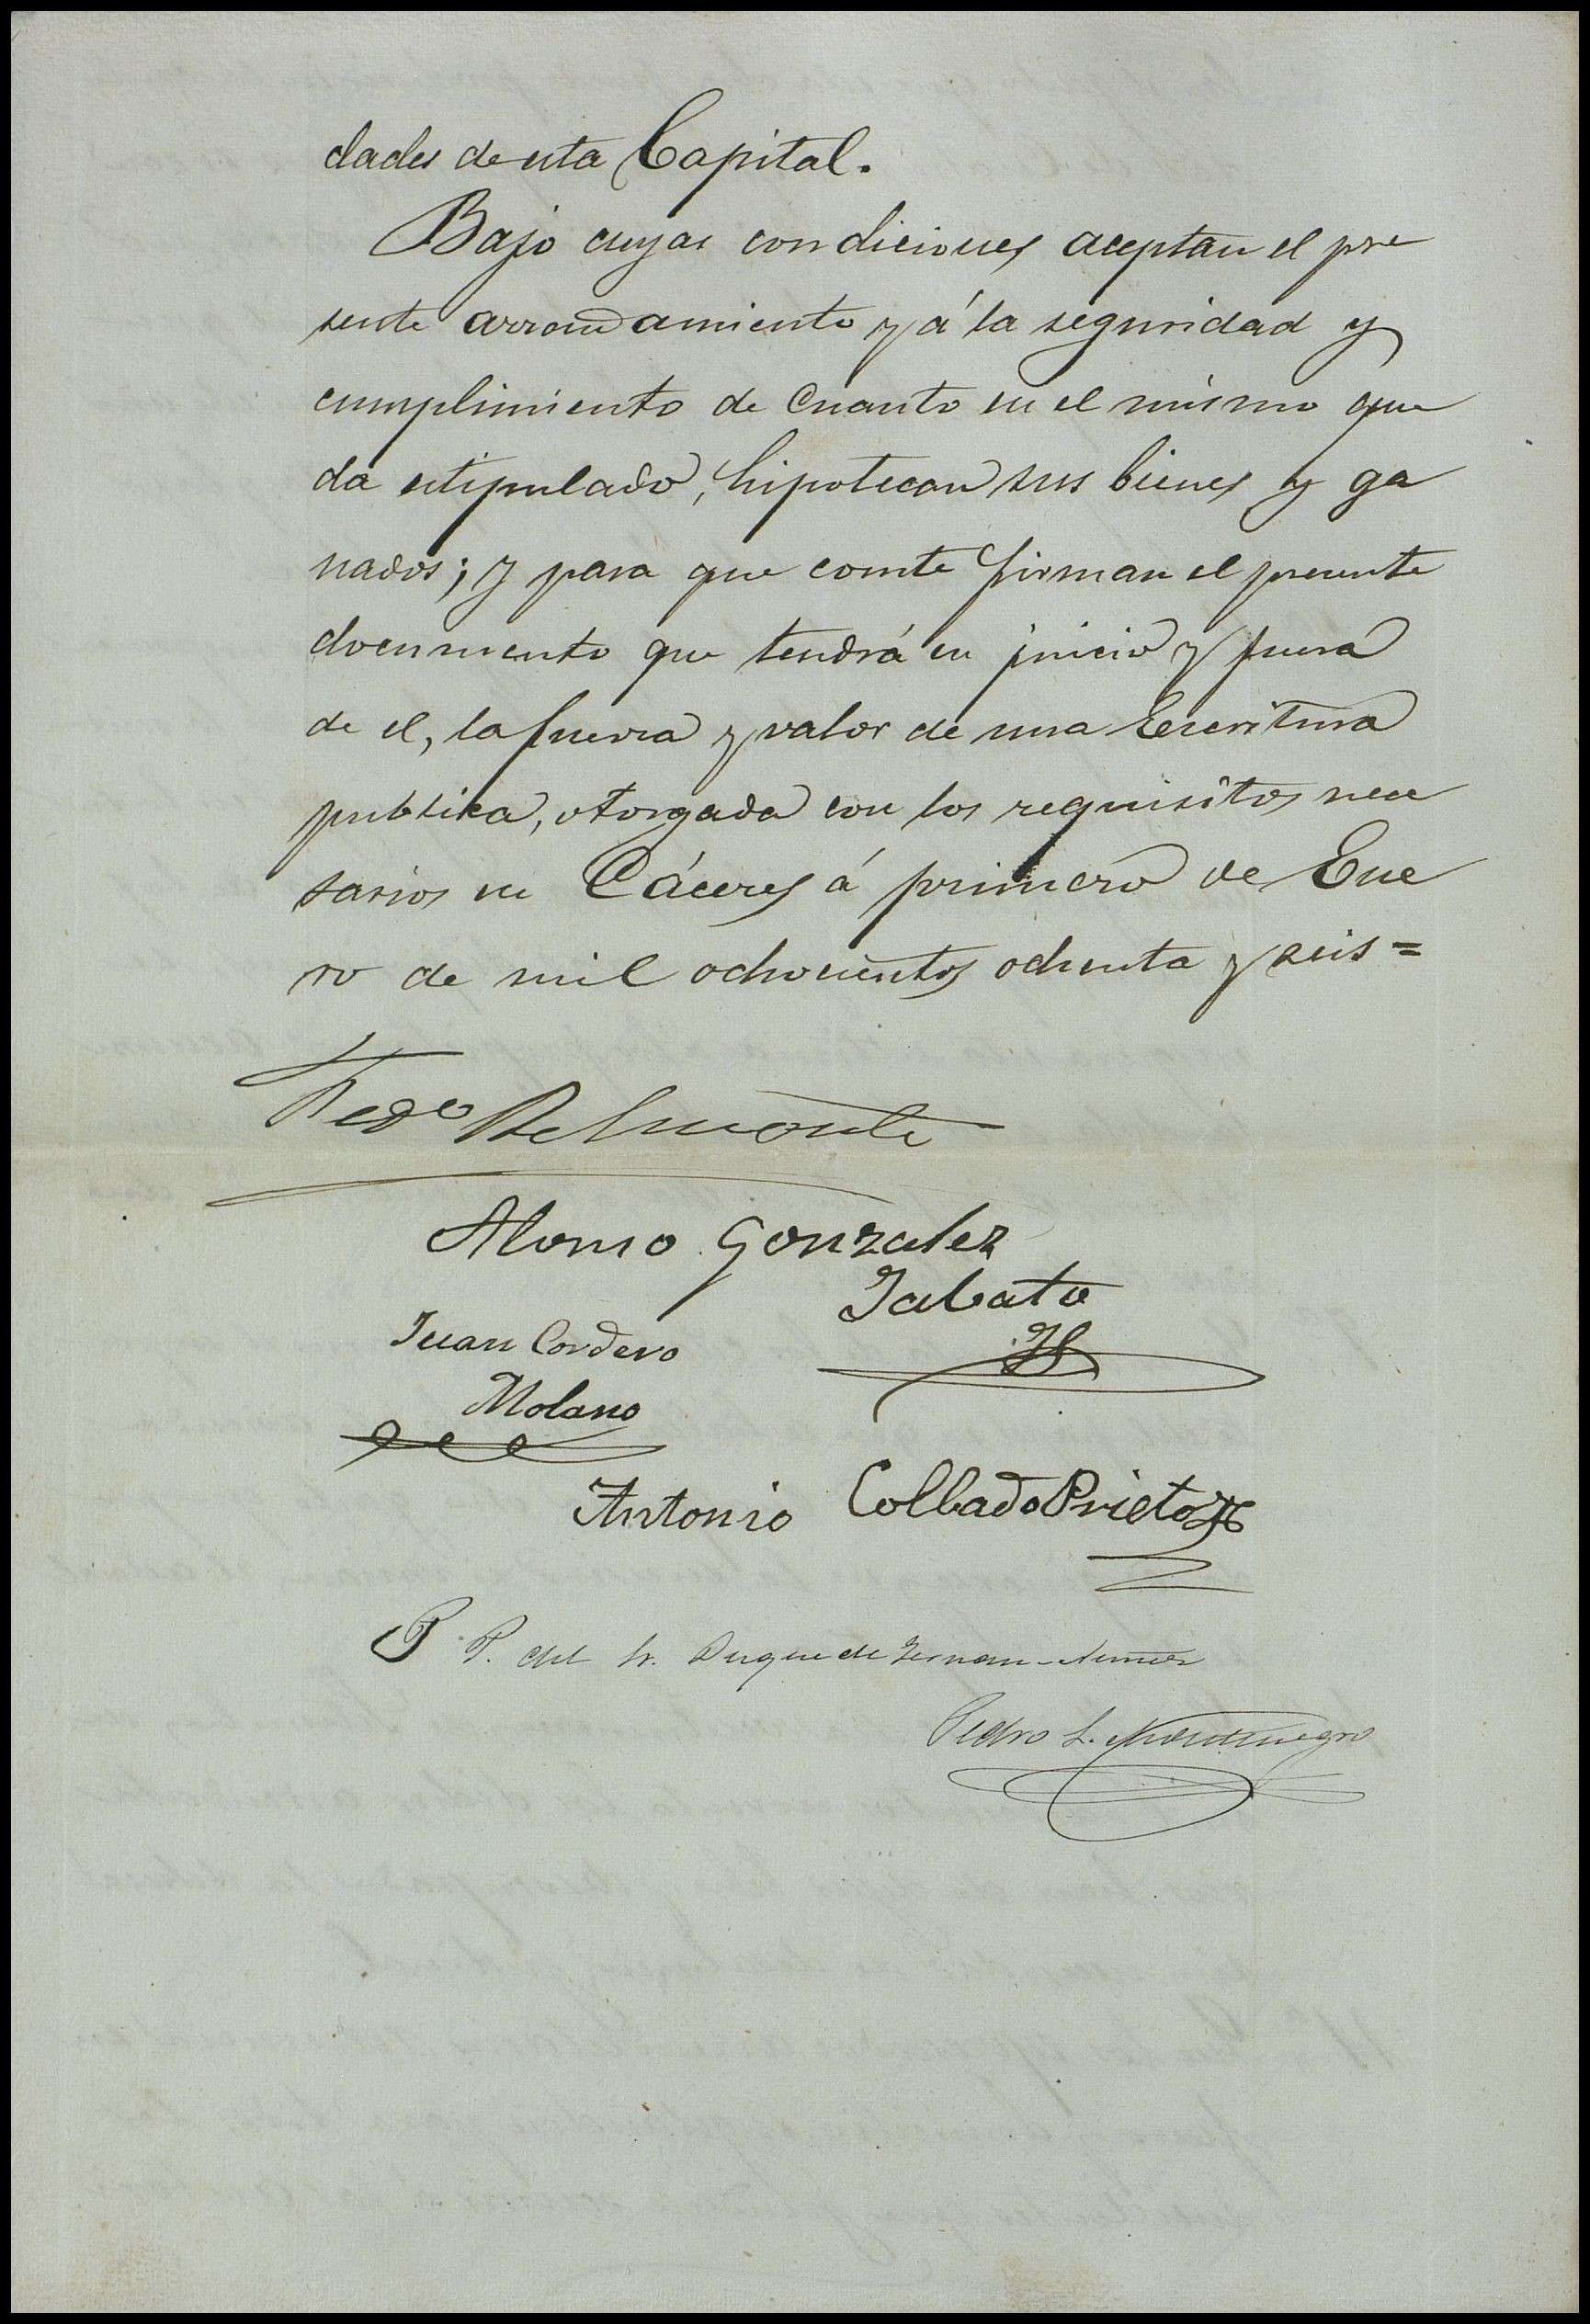 dades de esta Capital.
Bajo cuyas condiciones aceptan el pre
sente arrendamiento y á la seguridad y
cumplimiento de cuanto en el mismo que
da estipulado, hipotecan sus bienes y ga
nados; y para que conste firman el presente
documento que tendrá en juicio y fuera
de el, la fuerza y valor de una Escritura
publica, otorgada con los requisitos nece
sarios en Cáceres á primero de Ene
ro de mil ochocientos ochenta y seis =
Fedco Belmonte
Alonso Gonzalez
Jabato
Juan Cordero
Molano
Antonio Collado Prieto
P. P. del Sr. Duque de Fernan-Nuñez
Pedro L. Montenegro